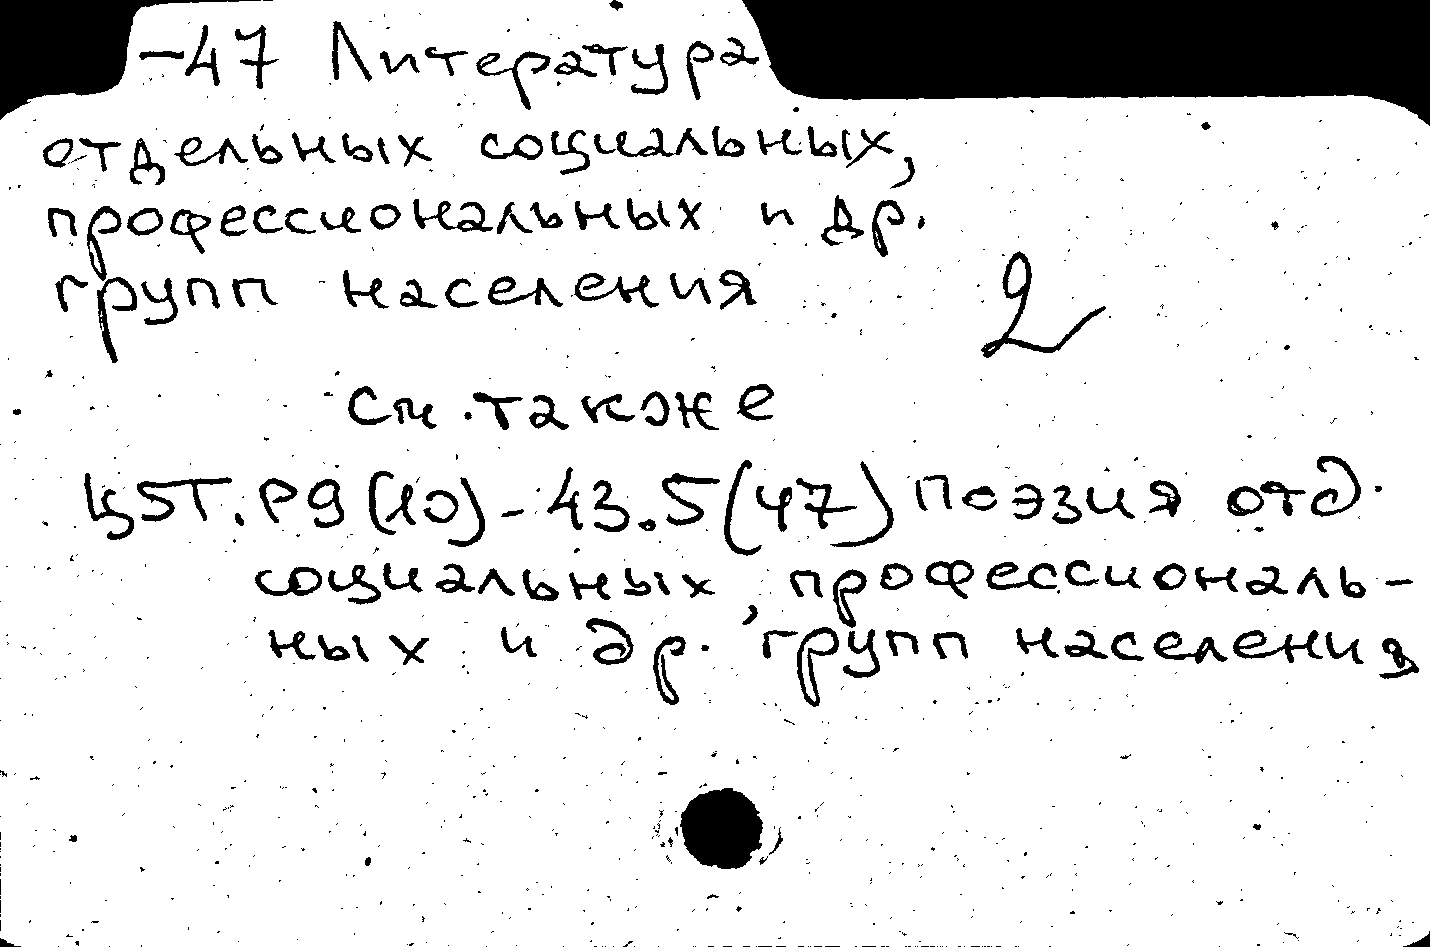 -47 Литература
отдельных социальных,
профессиональных и др.
групп населения
2
См. также
Ц5Т.Р9(10)-43.5(47) Поэзия отд.
социальных, профессиональ-
ных и др. групп населения